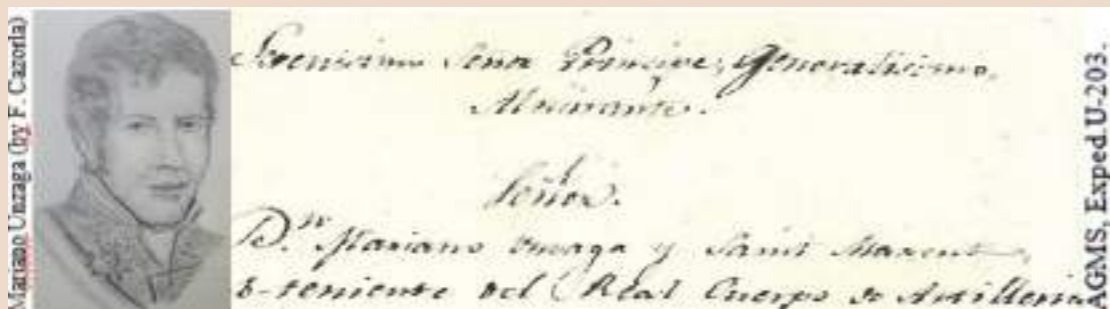 Mariano Unzaga (by F. Cazorla)
Serenisimo Señor Principe, Generalisimo,
Almirante.
Señor.
D.n Mariano Unzaga y Saint Maxent,
S-teniente del Real Cuerpo de Artilleria
AGMS, Exped.U-203.